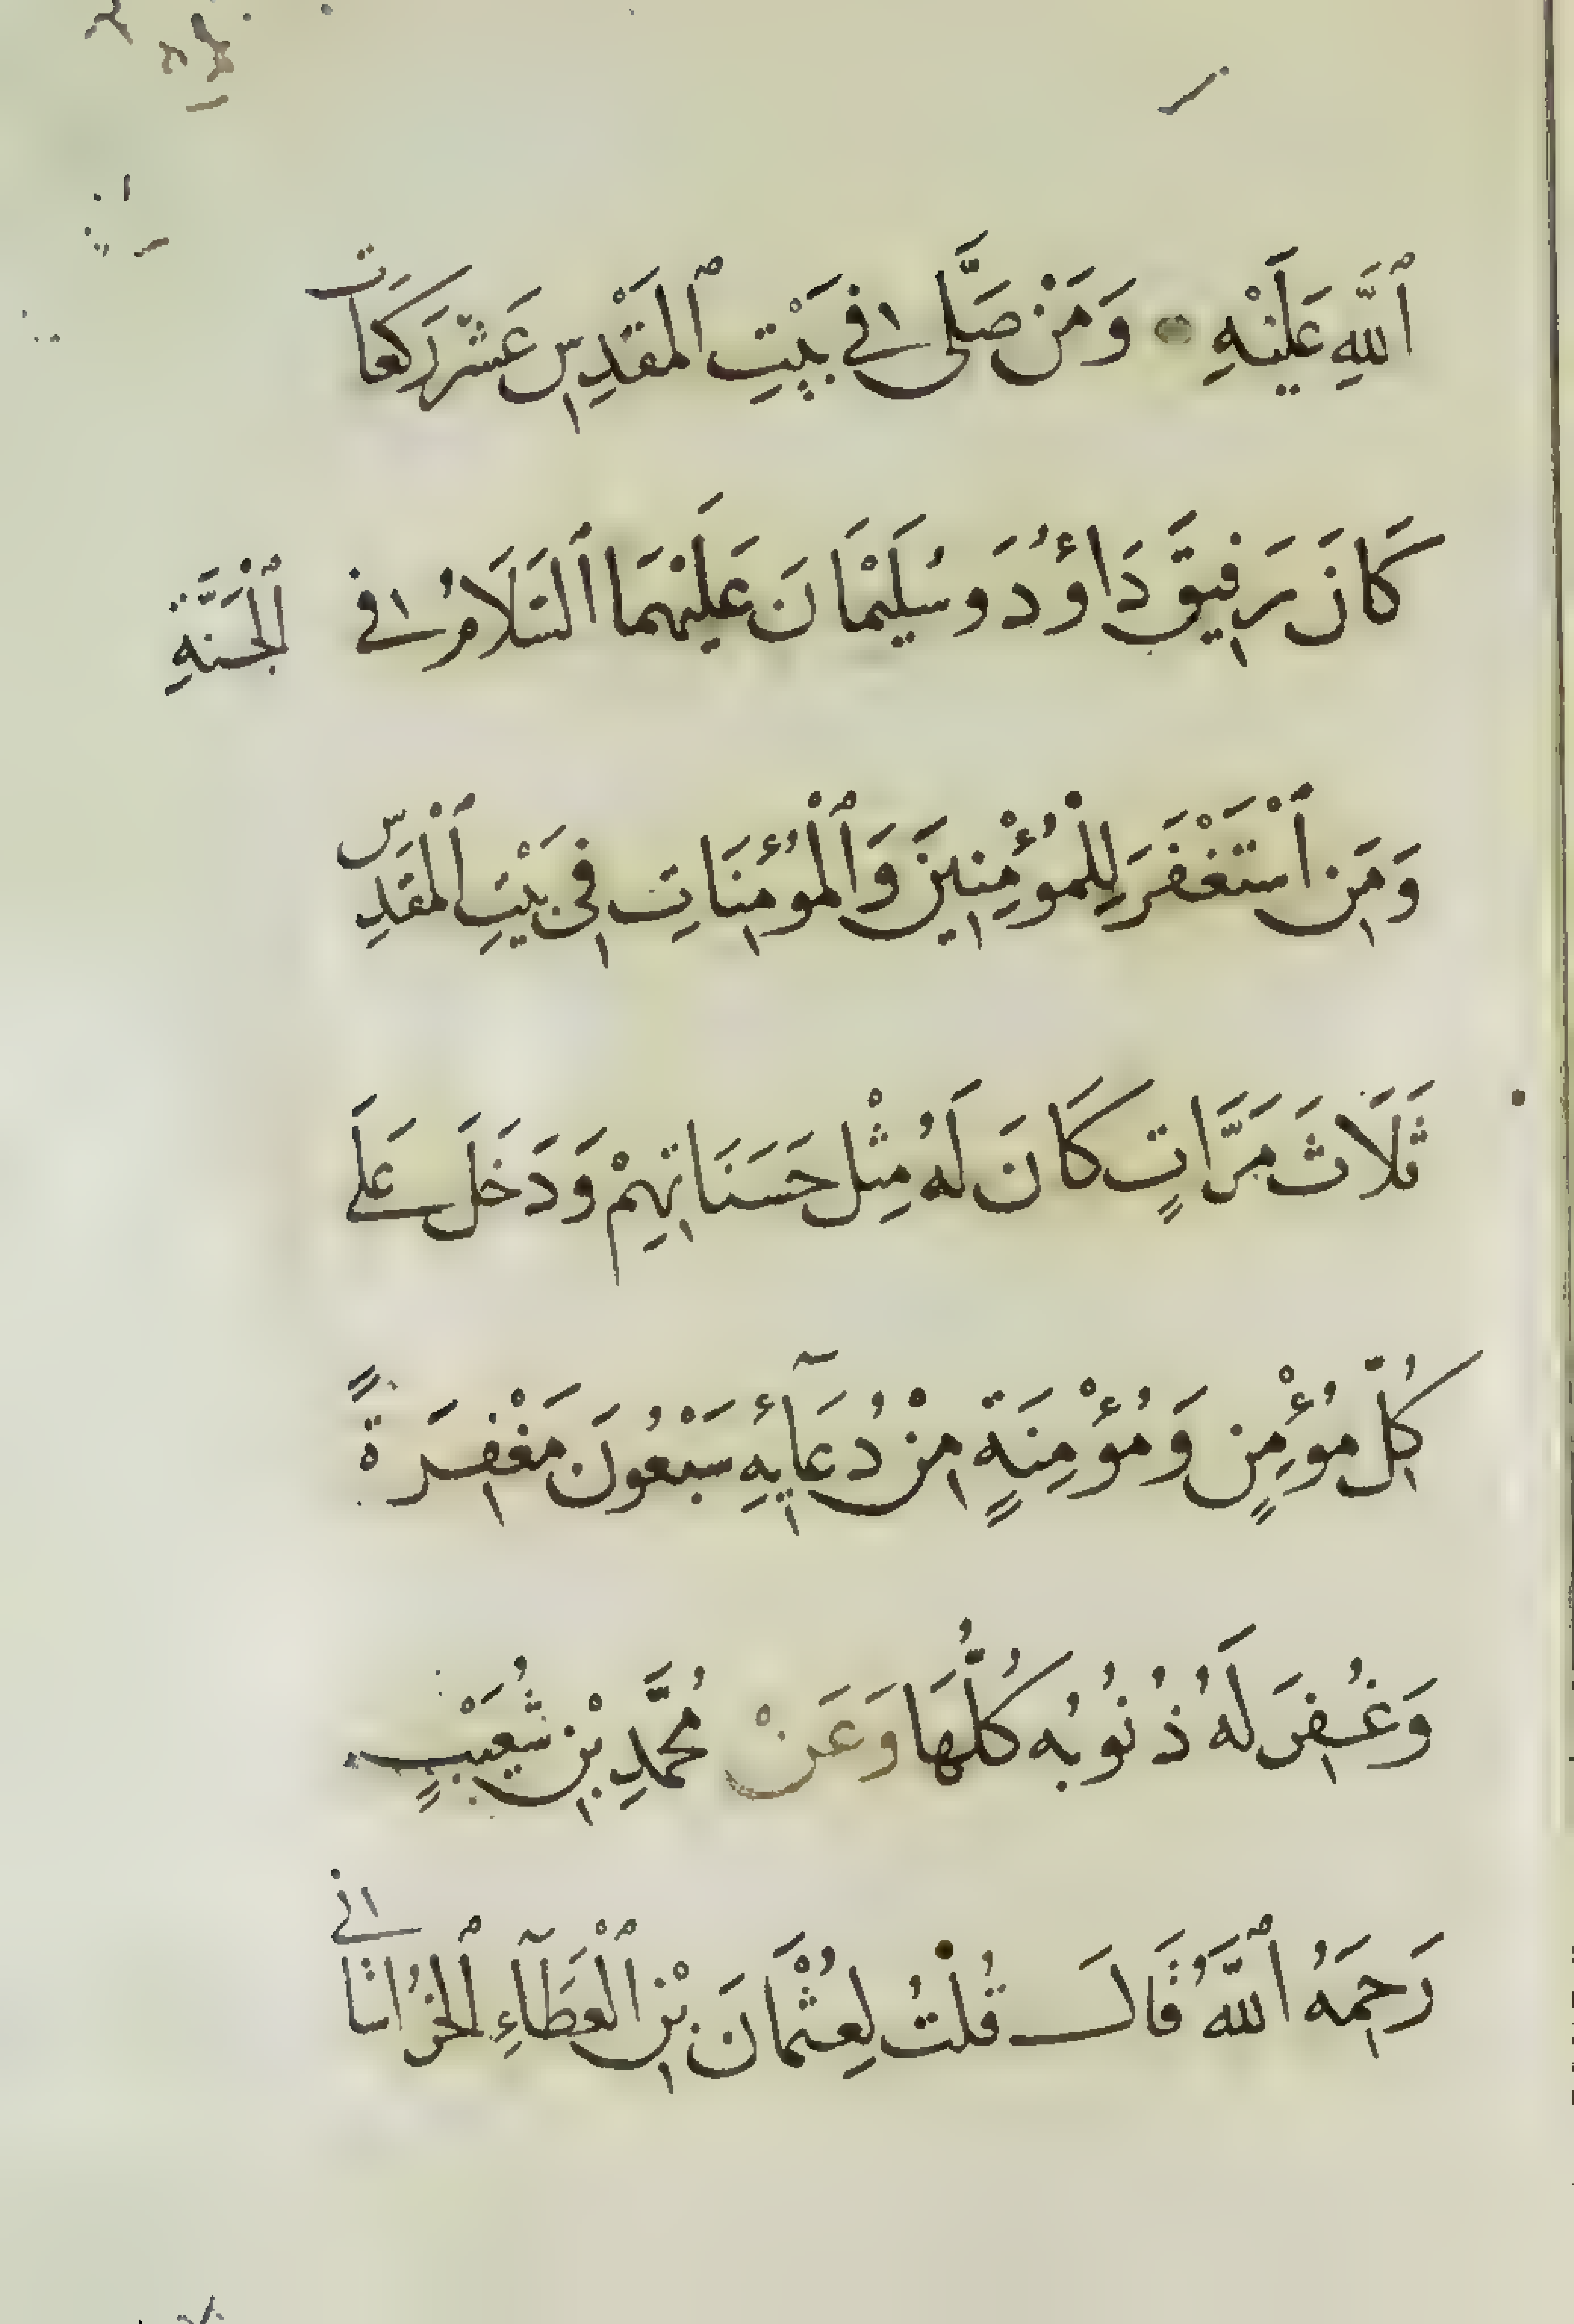 ٱللَّهِ عَلَيْهِ • وَمَنْ صَلَّى فِي بَيْتِ ٱلْمَقْدِسِ عَشْرَ رَكَعَاتٍ
كَانَ رَفِيقَ دَاؤُدَ وَسُلَيْمَانَ عَلَيْهِمَا ٱلسَّلَامُ فِي ٱلْجَنَّةِ
وَمَنِ ٱسْتَغْفَرَ لِلْمُؤْمِنِينَ وَٱلْمُؤْمِنَاتِ فِي بَيْتِ ٱلْمَقْدِسِ
ثَلَاثَ مَرَّاتٍ كَانَ لَهُ مِثْل حَسَنَاتِهِمْ وَدَخَلَ عَلَى
كُلِّ مُؤْمِنٍ وَمُؤْمِنَةٍ مِنْ دُعَآئِهِ سَبْعُونَ مَغْفِرَةً
وَغُفِرَ لَهُ ذُنُوبُه كُلُّهَا وَعَنْ مُحَمَّدِ بْنِ شُعَيْبٍ
رَحِمَهُ ٱللَّهُ قَالَ قُلْتُ لِعُثْمَانَ بْنِ ٱلْعَطَآءِ ٱلْخُرَاسَانِي